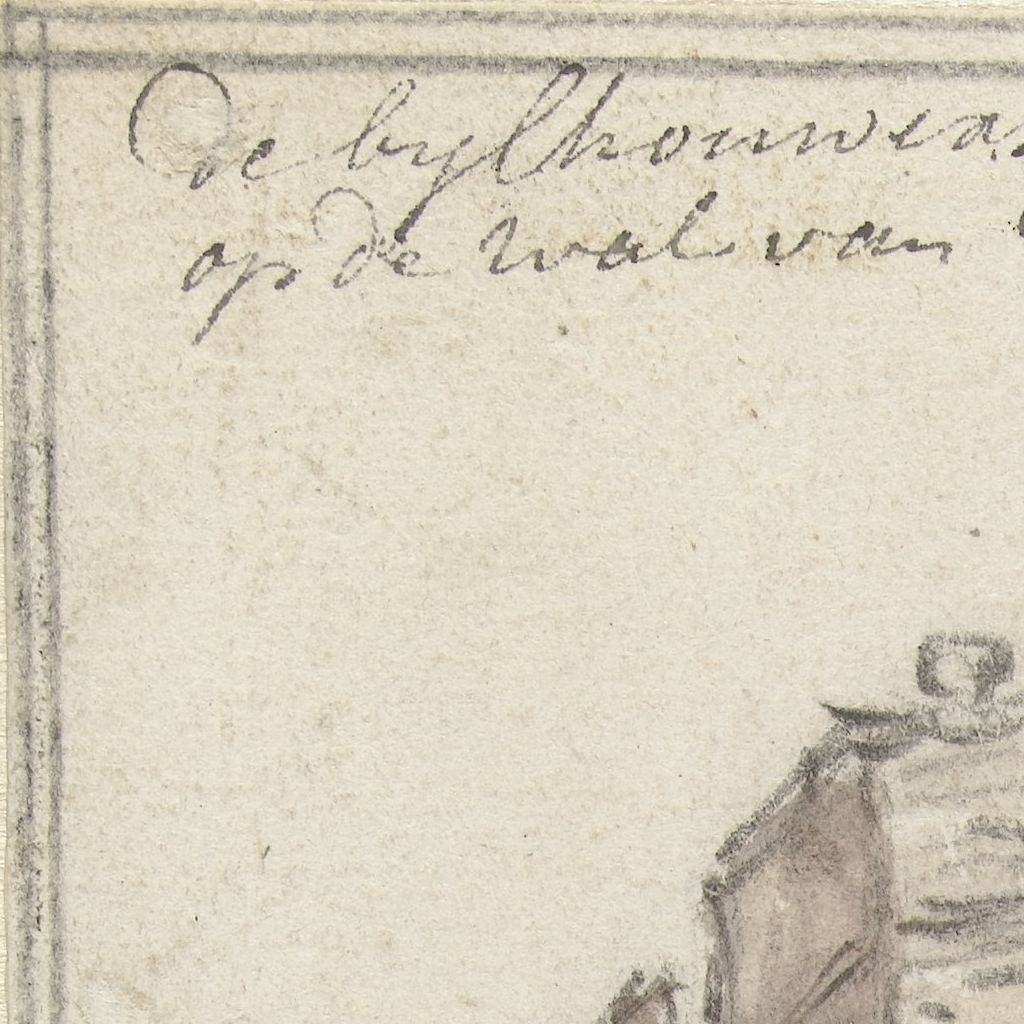 De bylhouwers
op de wal van